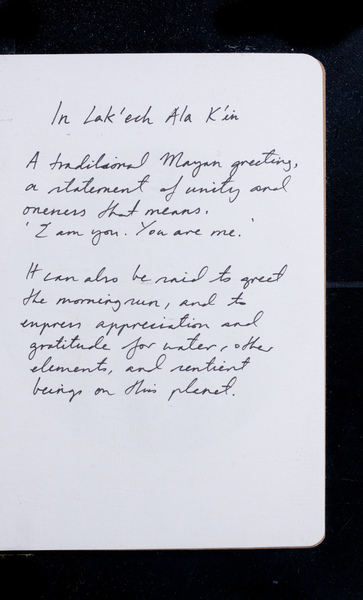 In Lak'ech Ala K'in
A traditional Mayan greeting,
a statement of unity and
oneness that means.
'I am you. You are me.'
It can also be said to greet
the morning sun, and to
express appreciation and
gratitude for water, other
elements, and sentient
beings on this planet.